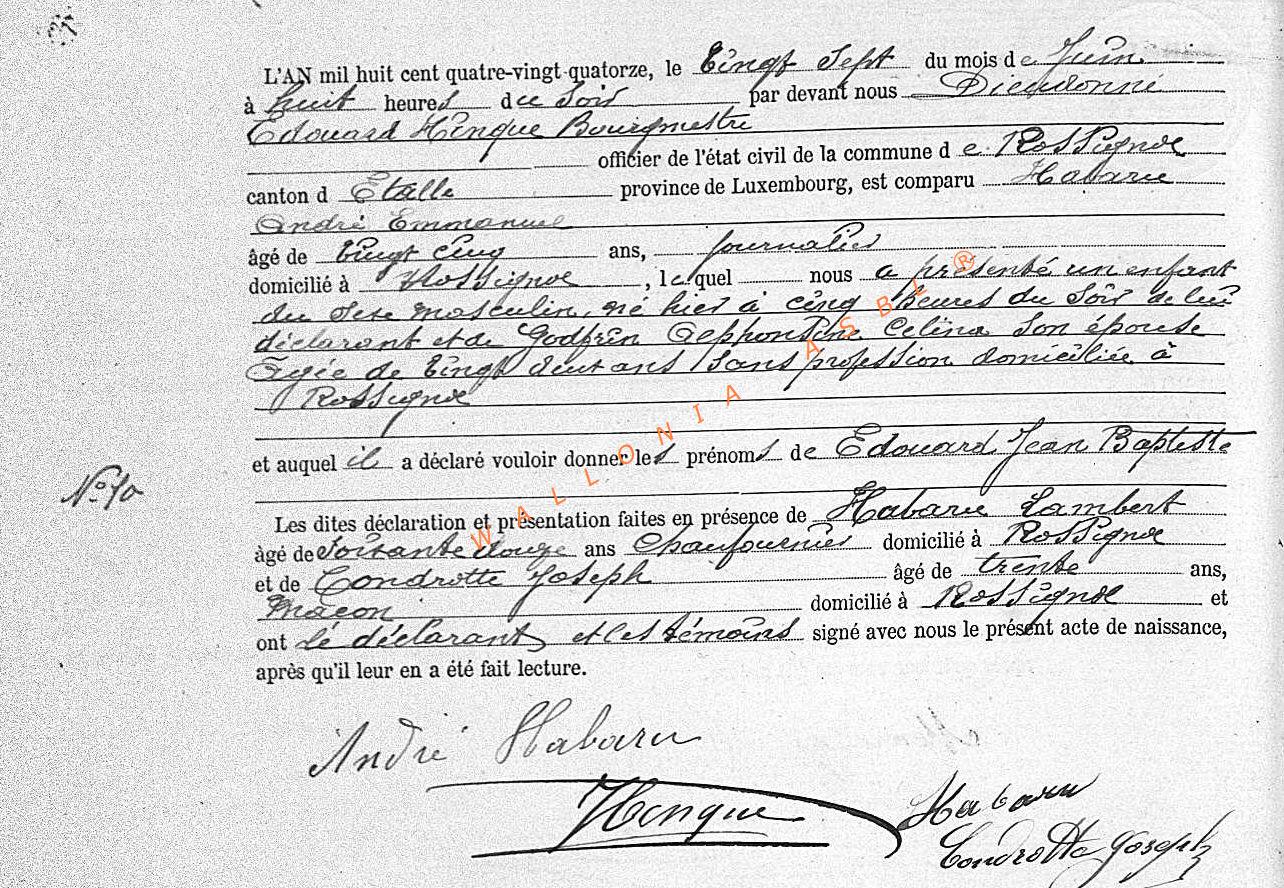 L'AN mil huit cent quatre-vingt quatorze, le Vingt Sept du mois de Juin
à huit heures du Soir par devant nous Dieudonné
Edouard Hinque Bourgmestre
officier de l'état civil de la commune de Rossignol
canton d Etalle province de Luxembourg, est comparu Habaru
André Emmanuel
âgé de Vingt Cinq ans, journalier
domicilié à Rossignol, lequel nous a présenté un enfant
du Sexe masculin, né hier à cinq heures du Soir de lui
déclarant et de Godfrin Celina Son épouse
Agée de Vingt deux ans Sans profession domiciliée à
Rossignol
et auquel il a déclaré vouloir donner les prénoms de Edouard Jean Baptiste
N° 10
Les dites déclaration et présentation faites en présence de Habaru Lambert
âgé de Soixante douze ans Chaufournier domicilié à Rossignol
et de Condrotte Joseph âgé de trente ans,
Maçon domicilié à Rossignol et
ont le déclarant et les témoins signé avec nous le présent acte de naissance,
après qu'il leur en a été fait lecture.
André Habaru
Hinque
Habaru
Condrotte Joseph
WALLONIA ASBL ®